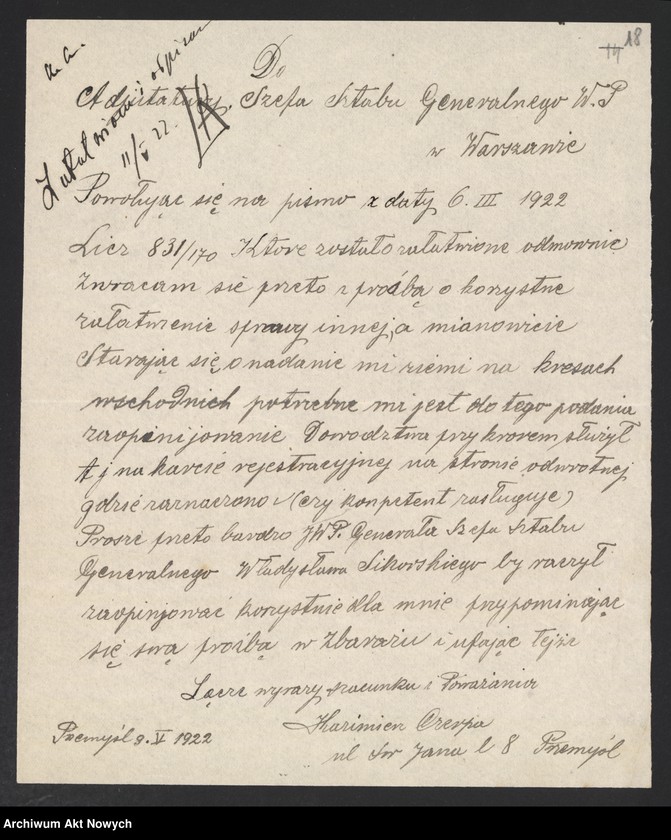 18
19
a. a.
Załatwiono i odpisano
11/V 22.
Do
Adjutantury Szefa Sztabu Generalnego W. P
w Warszawie
Powołując się na pismo z daty 6. III 1922
Licz 831/170 Które zostało załatwione odmownie
Zwracam się przeto z prośbą o korzystne
załatwienie sprawy innej, a mianowicie
Starając się o nadanie mi ziemi na kresach
wschodnich potrzebne mi jest do tego podania
zaopinijowanie Dowodztwa przy krorem służył
t j na karcie rejestracyjnej na stronie odwrotnej
gdzie zaznaczono (czy konpetent zasługuje)
Prosze przeto bardzo JWP. Generała Szefa Sztabu
Generalnego Władysława Sikorskiego by raczył
zaopinjować korzystnie dla mnie przypominając
się swą prośbą w Zbarażu i ufając tejże
Łącze wyrazy szacunku i Poważania
Kazimierz Czerpa
Przemyśl 9. V 1922
ul św Jana l 8 Przemyśl
Archiwum Akt Nowych